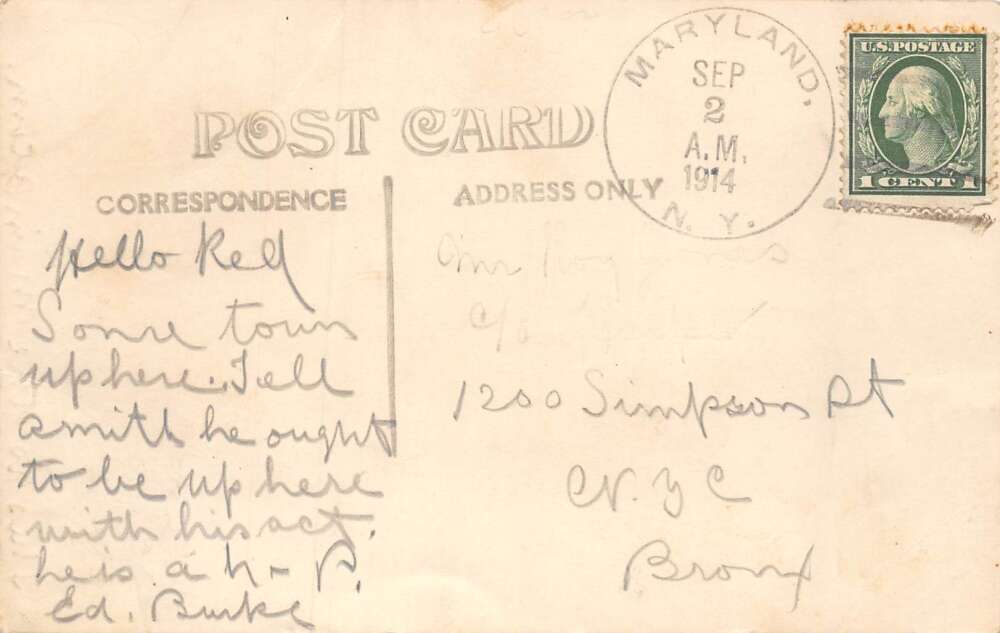 POST CARD
CORRESPONDENCE
ADDRESS ONLY
MARYLAND,
SEP
2
A.M.
1914
N. Y.
U.S. POSTAGE
1 CENT 1
Hello Red
Some town
up here. Tell
Smith he ought
to be up here
with his act.
he is a N - P.
Ed. Burke
Mr Roy
c/o
1200 Simpson St
N. Y C
Bronx